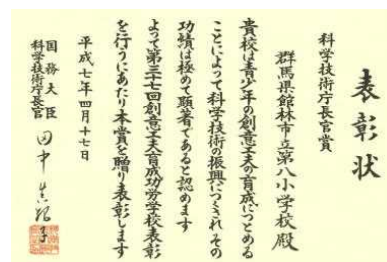 表彰状
科学技術庁長官賞
群馬県館林市立第八小学校殿
貴校は青少年の創意工夫の育成につとめる
ことによって科学技術の振興につくされその
功績は極めて顕著であると認めます
よって第三十七回創意工夫育成功労学校表彰
を行うにあたり本賞を贈り表彰します
平成七年四月十七日
国務大臣
科学技術庁長官
田中眞紀子